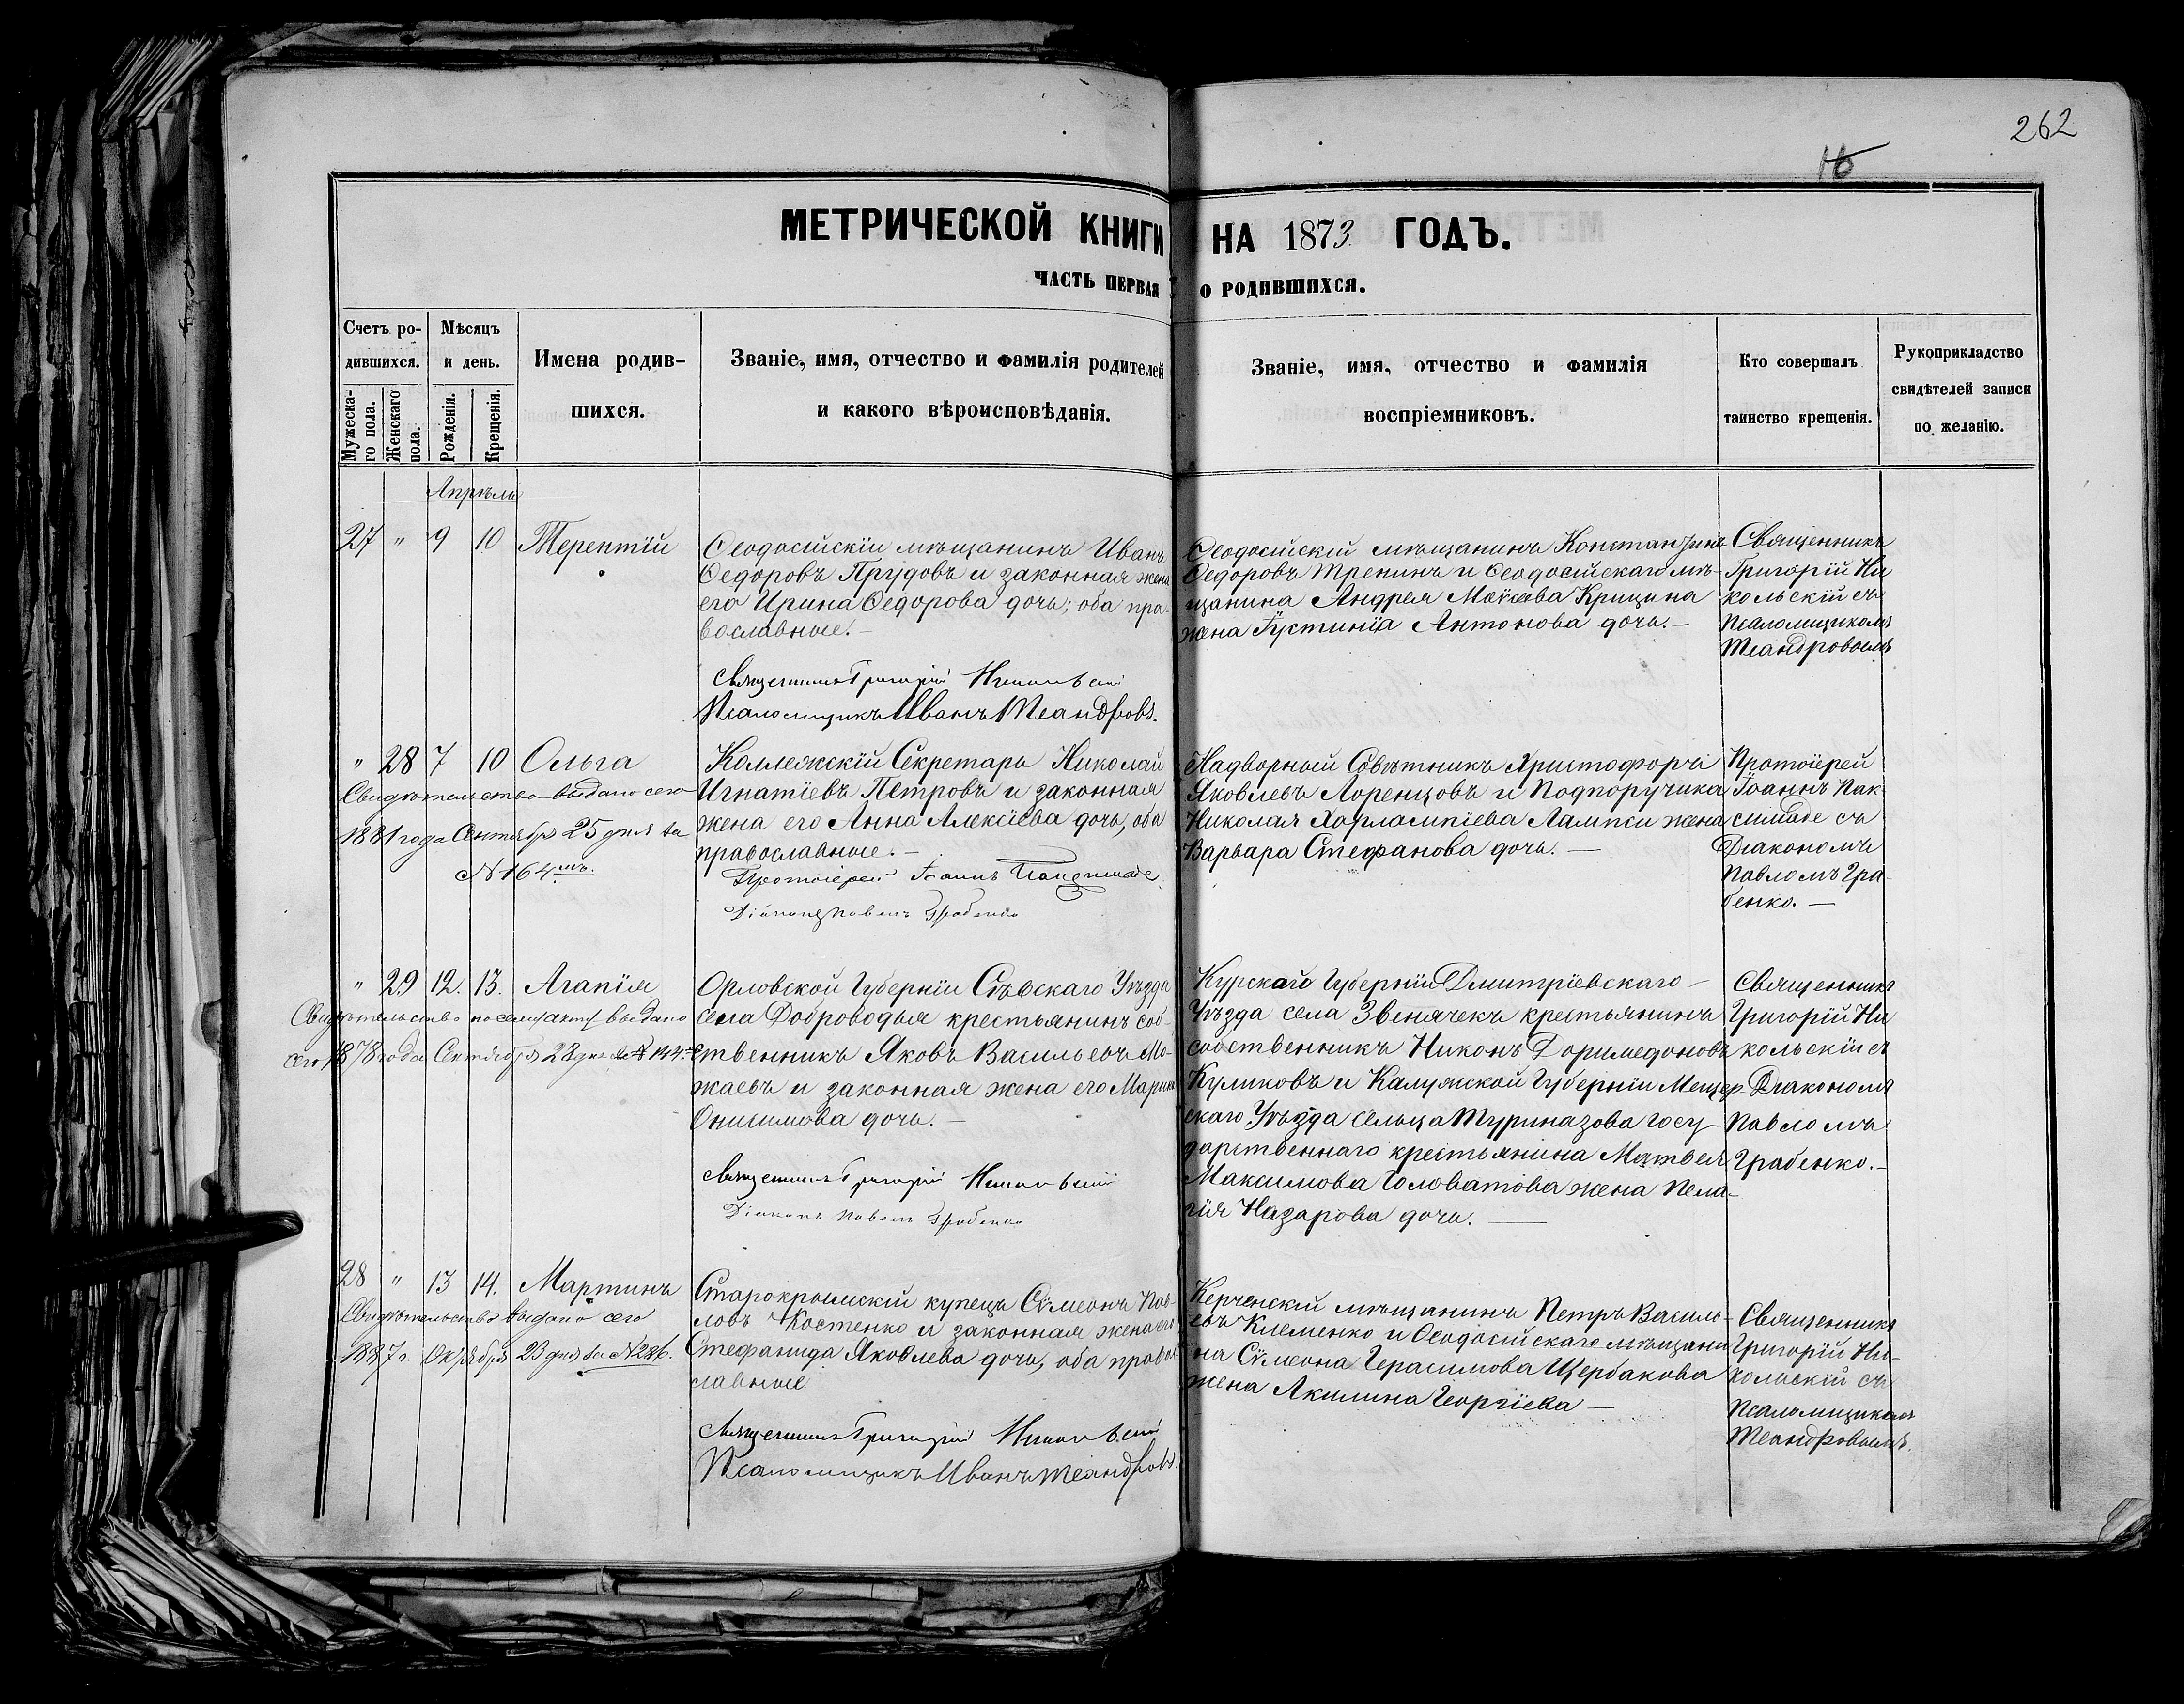 262
16
МЕТРИЧЕСКОЙ КНИГИ НА 1873 ГОДЪ.
ЧАСТЬ ПЕРВАЯ О РОДИВШИХСЯ.
Счетъ ро-
дившихся.
Мужеска-
го пола.
Женскаго
пола.
Мѣсяцъ
и день.
Рожденія.
Крещенія.
Имена родив-
шихся.
Званіе, имя, отчество и фамилія родителей
и какого вѣроисповѣданія.
Званіе, имя, отчество и фамилія
воспріемниковъ.
Кто совершалъ
таинство крещенія.
Рукоприкладство
свидѣтелей записи
по желанію.
Апрѣль
27 " 9 10 Терентій
Ѳеодосійскій мѣщанинъ Иванъ
Ѳедоровъ Прудовъ и законная жена
его Ирина Ѳедорова дочь; оба пра-
вославные. —
Священникъ Григорій Никольскій
Псаломщикъ Иванъ Теандровъ.
Ѳеодосійскій мѣщанинъ Константинъ
Ѳедоровъ Тренинъ и Ѳеодосійскаго мѣ-
щанина Андрея Крицина
жена Іустинія Антонова дочь. —
Священникъ
Григорій Ни
кольскій съ
Псаломщикомъ
Теандровымъ
" 28 7 10 Ольга
Свидѣтельство выдано сего
1881 года Сентября 25 дня за
№ 164мъ.
Коллежскій Секретарь Николай
Игнатіевъ Петровъ и законная
жена его Анна Алексіева дочь, оба
православные. —
Протоіерей Іоаннъ
Діаконъ Павелъ Грабенко
Надворный Совѣтникъ Христофоръ
Яковлевъ Лоренцовъ и Подпоручика
Николая Харлампіева Лампси жена
Варвара Стефанова дочь. —
Протоіерей
Іоаннъ Пак
симаде съ
Діакономъ
Павломъ Гра-
бенко. —
" 29 12. 13. Агапія
Свидѣтельство по сему акту выдано
сего 1878 года Сентября 28 дня
Орловской Губерніи Сѣвскаго Уѣзда
села Доброводья крестьянинъ соб-
ственникъ Яковъ Васильевъ Мо-
жаевъ и законная жена его Марина
Онисимова дочь. —
Священникъ Григорій Никольскій
Діаконъ Павелъ Грабенко
Курскаго Губерніи Дмитріевскаго —
Уѣзда села Звенячекъ крестьянинъ
собственникъ Никонъ Доримедоновъ
Куликовъ и Калужской Губерніи Мещер-
скаго Уѣзда сельца Туриназова госу-
дарственнаго крестьянина Матвея
Максимова Головатова жена Пела-
гія Назарова дочь. —
Священникъ
Григорій Ни
кольскій съ
Діакономъ
Павломъ
Грабенко. —
28 " 13 14. Мартинъ
Свидѣтельство выдано сего
1887 г. Октября 23 дня за № 286.
Старокрымскій купецъ Сѵмеонъ Пав-
ловъ Костенко и законная жена его
Стефанида Яковлева дочь, оба право-
славные
Священникъ Григорій Никольскій
Псаломщикъ Иванъ Теандровъ.
Керченскій мѣщанинъ Петръ Василь-
евъ Клеменко и Ѳеодосійскаго мѣщани
на Сѵмеона Герасимова Щербакова
жена Акилина Георгіева —
Священникъ
Григорій Ни-
кольскій съ
Псаломщикомъ
Теандровымъ.